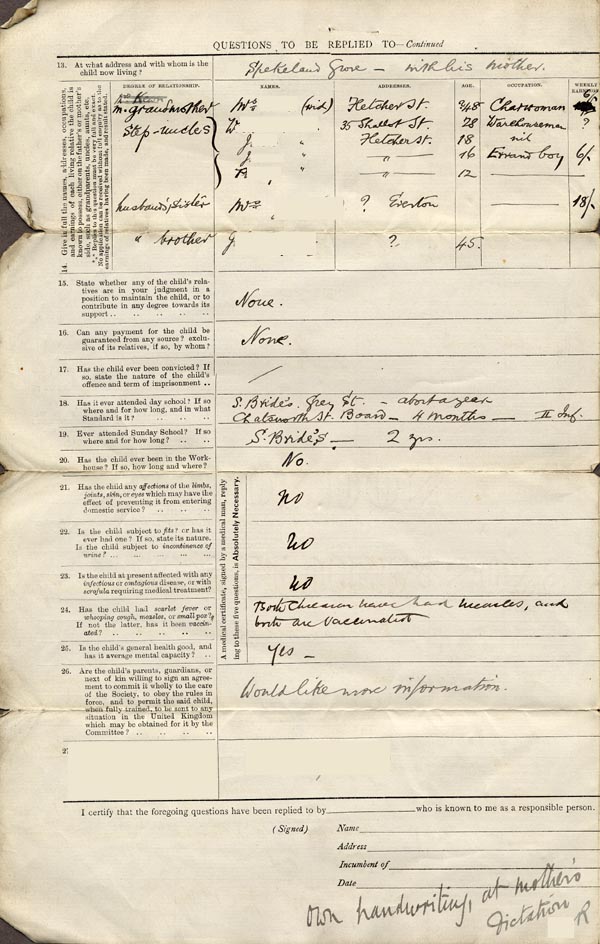 QUESTIONS TO BE REPLIED TO—Continued
13. At what address and with whom is the
child now living?
Spekeland Grove — with his mother.
14. Give in full the names, addresses, occupations,
and earnings of each living relative the child is
known to possess, either on the father's or mother's
side, such as grandparents, uncles, aunts, etc.
*** Replies to this question must be very full and exact.
No application can be received without full enquiry as to the
earnings of relatives having been made, and result stated.
DEGREE OF RELATIONSHIP. NAMES. ADDRESSES. AGE. OCCUPATION. WEEKLY EARNINGS
m. grandmother Mrs (wid) Fletcher St. 48 Charwoman
Step-uncles W. " 35 Shallot St. 28 Warehouseman ?
J. " Fletcher St. 18 nil
J. " " 16 Errand boy 6/-
A. " " 12
husband's sister Mrs " ? Everton 18/-
" brother J. " ? 45.
15. State whether any of the child's rela-
tives are in your judgment in a
position to maintain the child, or to
contribute in any degree towards its
support .. .. .. ..
None.
16. Can any payment for the child be
guaranteed from any source? exclu-
sive of its relatives, if so, by whom?
None.
17. Has the child ever been convicted? If
so, state the nature of the child's
offence and term of imprisonment ..
/
18. Has it ever attended day school? If so
where and for how long, and in what
Standard is it? .. .. ..
S. Bride's. Grey St. — about a year
Chatsworth St. Board — 4 months — II Inf.
19. Ever attended Sunday School? If so
where and for how long? .. ..
S. Bride's — 2 yrs.
20. Has the child ever been in the Work-
house? If so, how long and where?
No.
A medical certificate, signed by a medical man, reply
ing to these five questions, is Absolutely Necessary.
21. Has the child any affections of the limbs,
joints, skin, or eyes which may have the
effect of preventing it from entering
domestic service? .. .. ..
no
22. Is the child subject to fits? or has it
ever had one? If so, state its nature.
Is the child subject to incontinence of
urine? .. .. .. ..
no
23. Is the child at present affected with any
infectious or contagious disease, or with
scrofula requiring medical treatment?
no
24. Has the child had scarlet fever or
whooping cough, measles, or small pox?
If not the latter, has it been vaccin-
ated? .. .. .. ..
Both Children have had measles, and
both are vaccinated
25. Is the child's general health good, and
has it average mental capacity? ..
Yes —
26. Are the child's parents, guardians, or
next of kin willing to sign an agree-
ment to commit it wholly to the care
of the Society, to obey the rules in
force, and to permit the said child,
when fully trained, to be sent to any
situation in the United Kingdom
which may be obtained for it by the
Committee? .. .. .. ..
Would like more information.
I certify that the foregoing questions have been replied to by who is known to me as a responsible person.
(Signed) Name
Address
Incumbent of
Date
Own handwriting, at mother's
dictation R